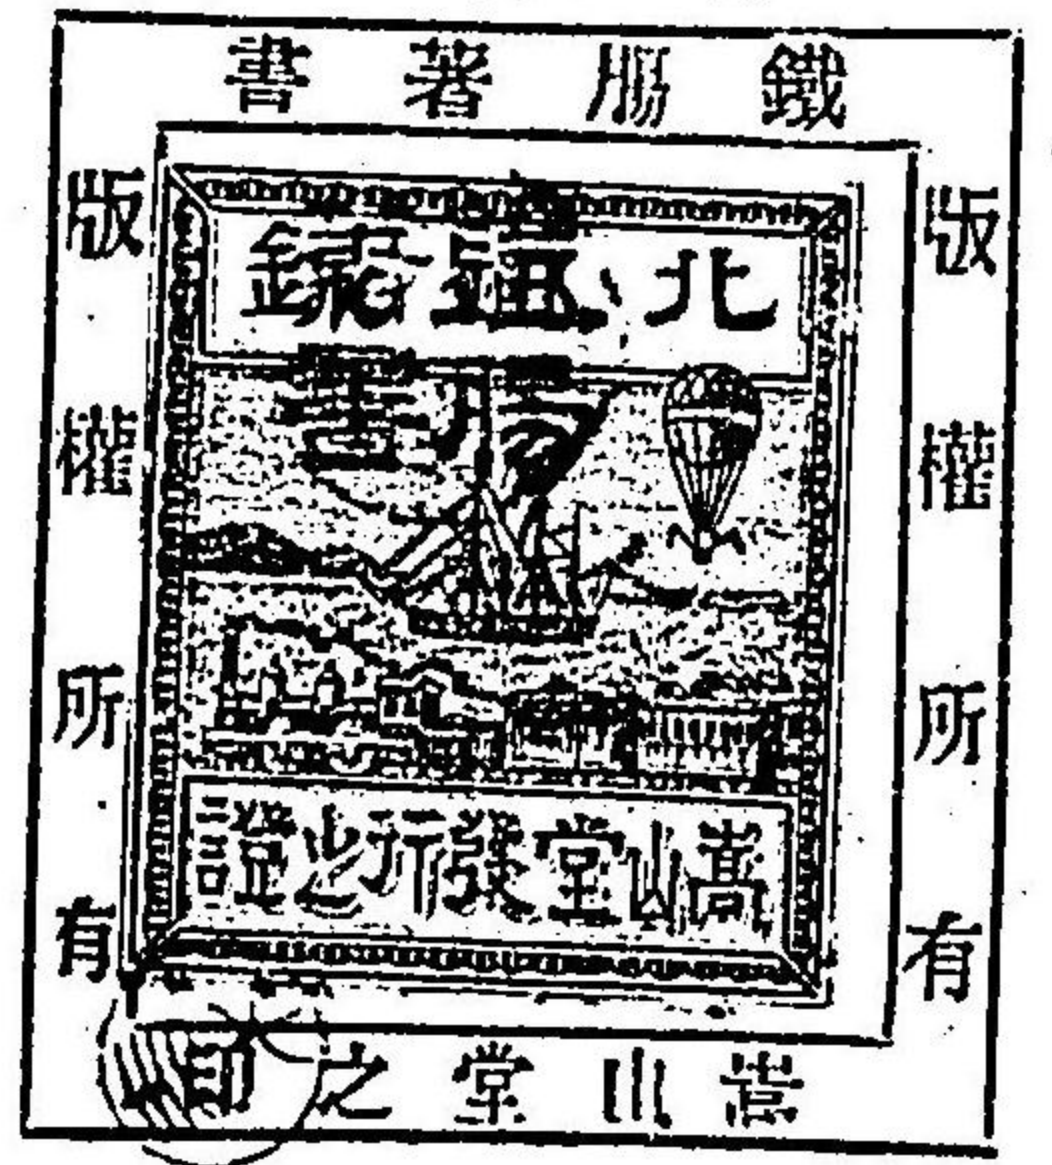 鐵膓著書
版權所有
版權所有
北遊鐵
膓書
嵩山堂發行之證
嵩山堂之印